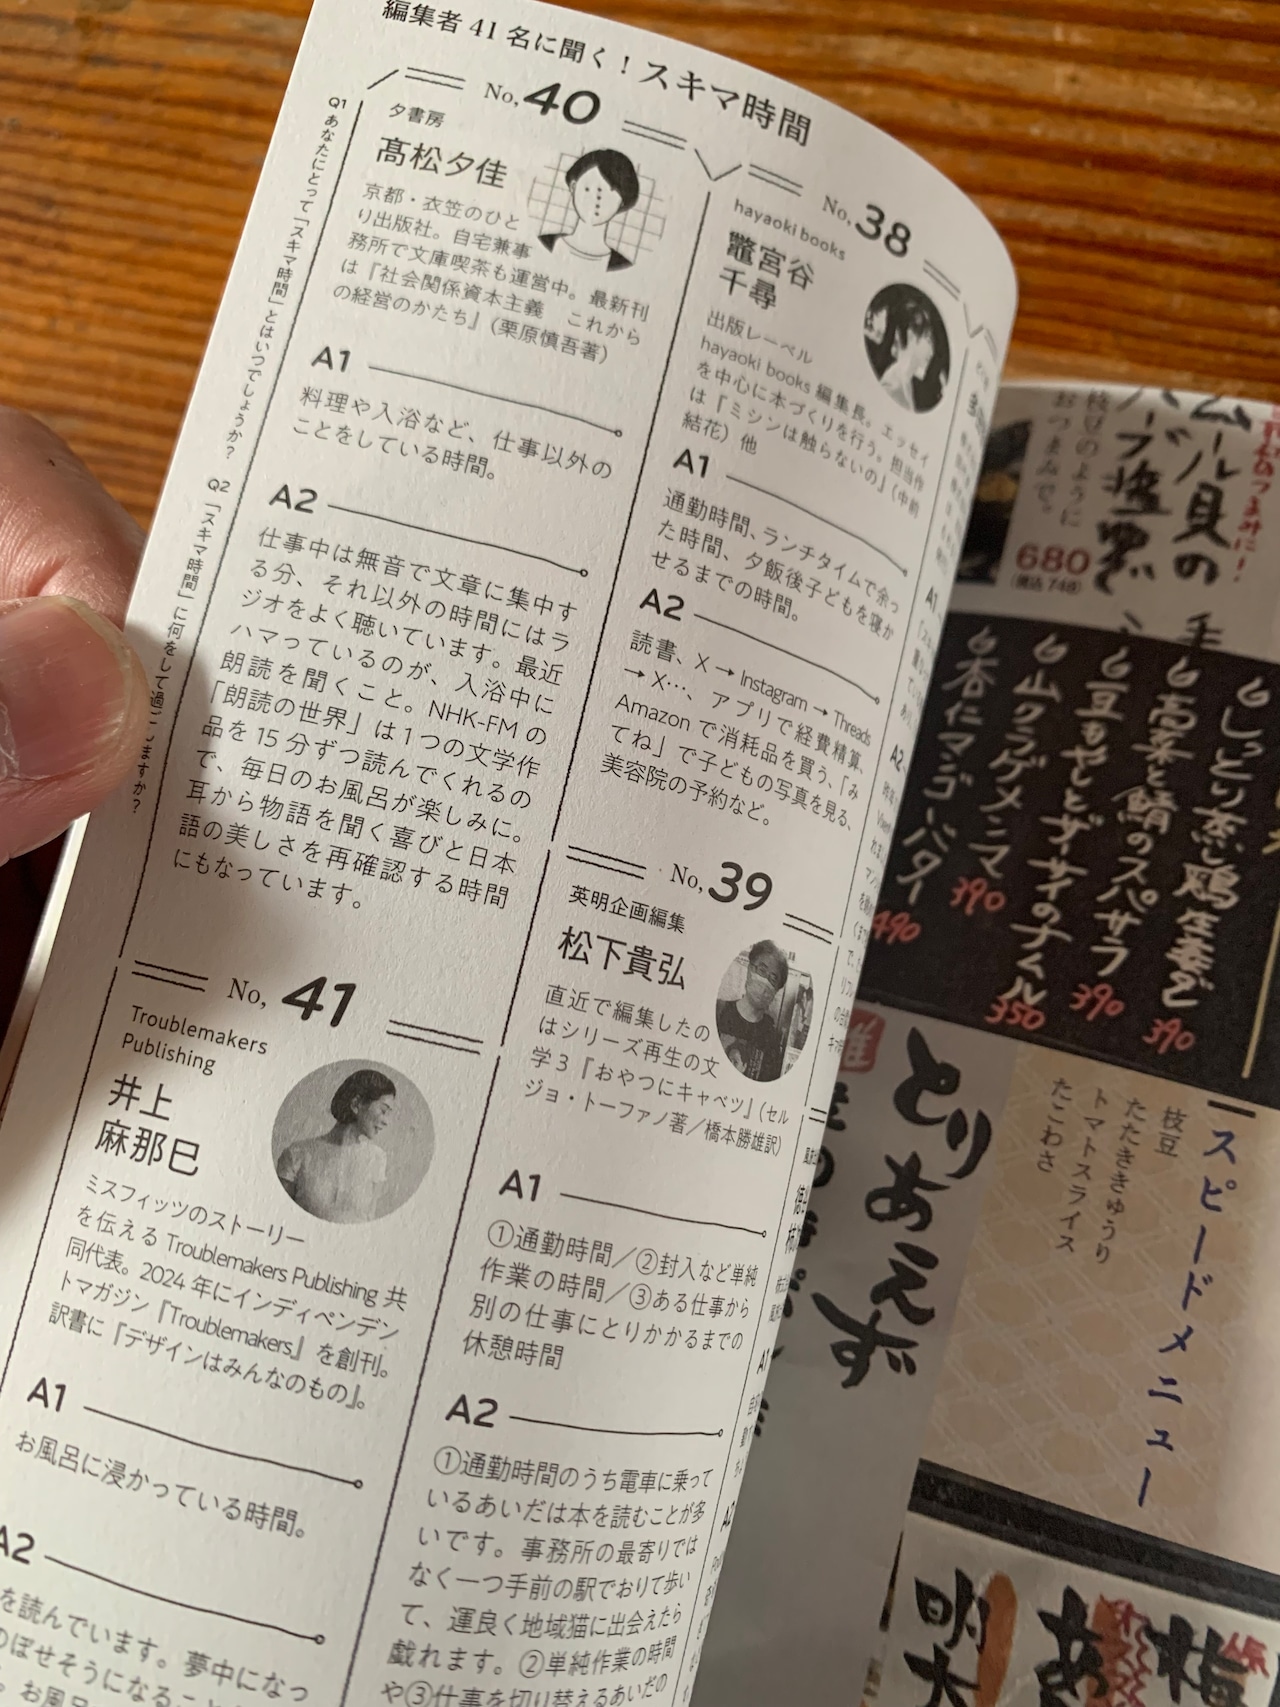 編集者 41 名に聞く！スキマ時間
Q1 あなたにとって「スキマ時間」とはいつでしょうか？
Q2 「スキマ時間」に何をして過ごしますか？
No, 38
hayaoki books
鼈宮谷
千尋
出版レーベル
hayaoki books 編集長。エッセイ
を中心に本づくりを行う。担当作
は『ミシンは触らないの』（中前
結花）他
A1
通勤時間、ランチタイムで余っ
た時間、夕飯後子どもを寝か
せるまでの時間。
A2
読書、X → Instagram → Threads
→ X…、アプリで経費精算、
Amazon で消耗品を買う、「み
てね」で子どもの写真を見る、
美容院の予約など。
No, 39
英明企画編集
松下貴弘
直近で編集したの
はシリーズ再生の文
学 3『おやつにキャベツ』（セル
ジョ・トーファノ著／橋本勝雄訳）
A1
①通勤時間／②封入など単純
作業の時間／③ある仕事から
別の仕事にとりかかるまでの
休憩時間
A2
①通勤時間のうち電車に乗って
いるあいだは本を読むことが多
いです。事務所の最寄りでは
なく一つ手前の駅でおりて歩い
て、運良く地域猫に出会えたら
戯れます。②単純作業の時間
や③仕事を切り替えるあいだの
No, 40
夕書房
髙松夕佳
京都・衣笠のひと
り出版社。自宅兼事
務所で文庫喫茶も運営中。最新刊
は『社会関係資本主義　これから
の経営のかたち』（栗原慎吾著）
A1
料理や入浴など、仕事以外の
ことをしている時間。
A2
仕事中は無音で文章に集中す
る分、それ以外の時間にはラ
ジオをよく聴いています。最近
ハマっているのが、入浴中に
朗読を聞くこと。NHK-FM の
「朗読の世界」は 1 つの文学作
品を 15 分ずつ読んでくれるの
で、毎日のお風呂が楽しみに。
耳から物語を聞く喜びと日本
語の美しさを再確認する時間
にもなっています。
No, 41
Troublemakers
Publishing
井上
麻那巳
ミスフィッツのストーリー
を伝える Troublemakers Publishing 共
同代表。2024 年にインディペンデン
トマガジン『Troublemakers』を創刊。
訳書に『デザインはみんなのもの』。
A1
お風呂に浸かっている時間。
A2
を読んでいます。夢中になっ
のぼせそうになること
お風呂
ムール貝の
枝豆のように
おつまみで。
680
(税込 748)
しっとり蒸し鶏生姜だれ
390
高菜と鯖のスパサラ
390
豆もやしとザーサイのナムル
350
山クラゲメンマ
390
杏仁マンゴーバター
490
とりあえず
スピードメニュー
枝豆
たたききゅうり
トマトスライス
たこわさ
梅
明太